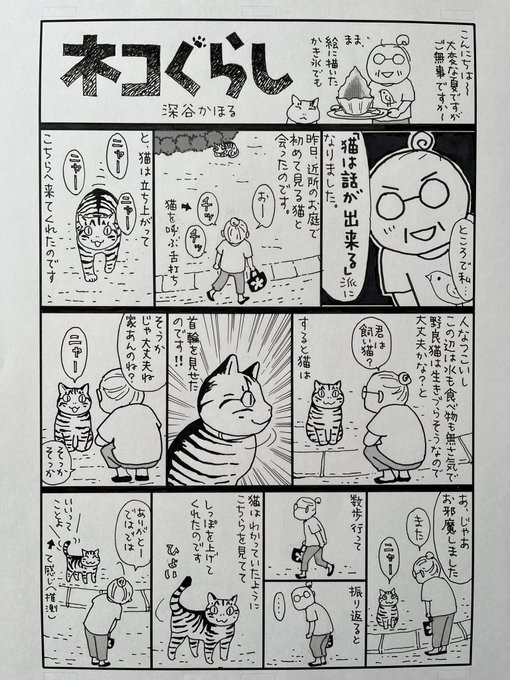 ネコぐらし
深谷かほる
こんにちは〜
大変な夏ですが
ご無事ですか〜
まま、
絵に描いた
かき氷でも
ところで私…
「猫は話が出来る」派に
なりました。
昨日、近所のお庭で
初めて見る猫と
会ったのです。
おー
チッ
チッ
猫を呼ぶ舌打ち
と、猫は立ち上がって
こちらへ来てくれたのです
ニャー
ニャー
人なつこいし
この辺は水も食べ物も無さ気で
野良猫は生きづらそうなので
大丈夫かな?と
君は
飼い猫?
すると猫は
首輪を見せた
のです!!
そうか
じゃ大丈夫ね
家あんのね?
ニャー
そっか
そっか
あ、じゃあ
お邪魔しました
また
ニャー
散歩行って
振り返ると
…
猫はわかっていたように
こちらを見てて
しっぽを上げて
くれたのです
ひょい
ありがとー
ではでは
いいって
ことよ
て感じ(推測)